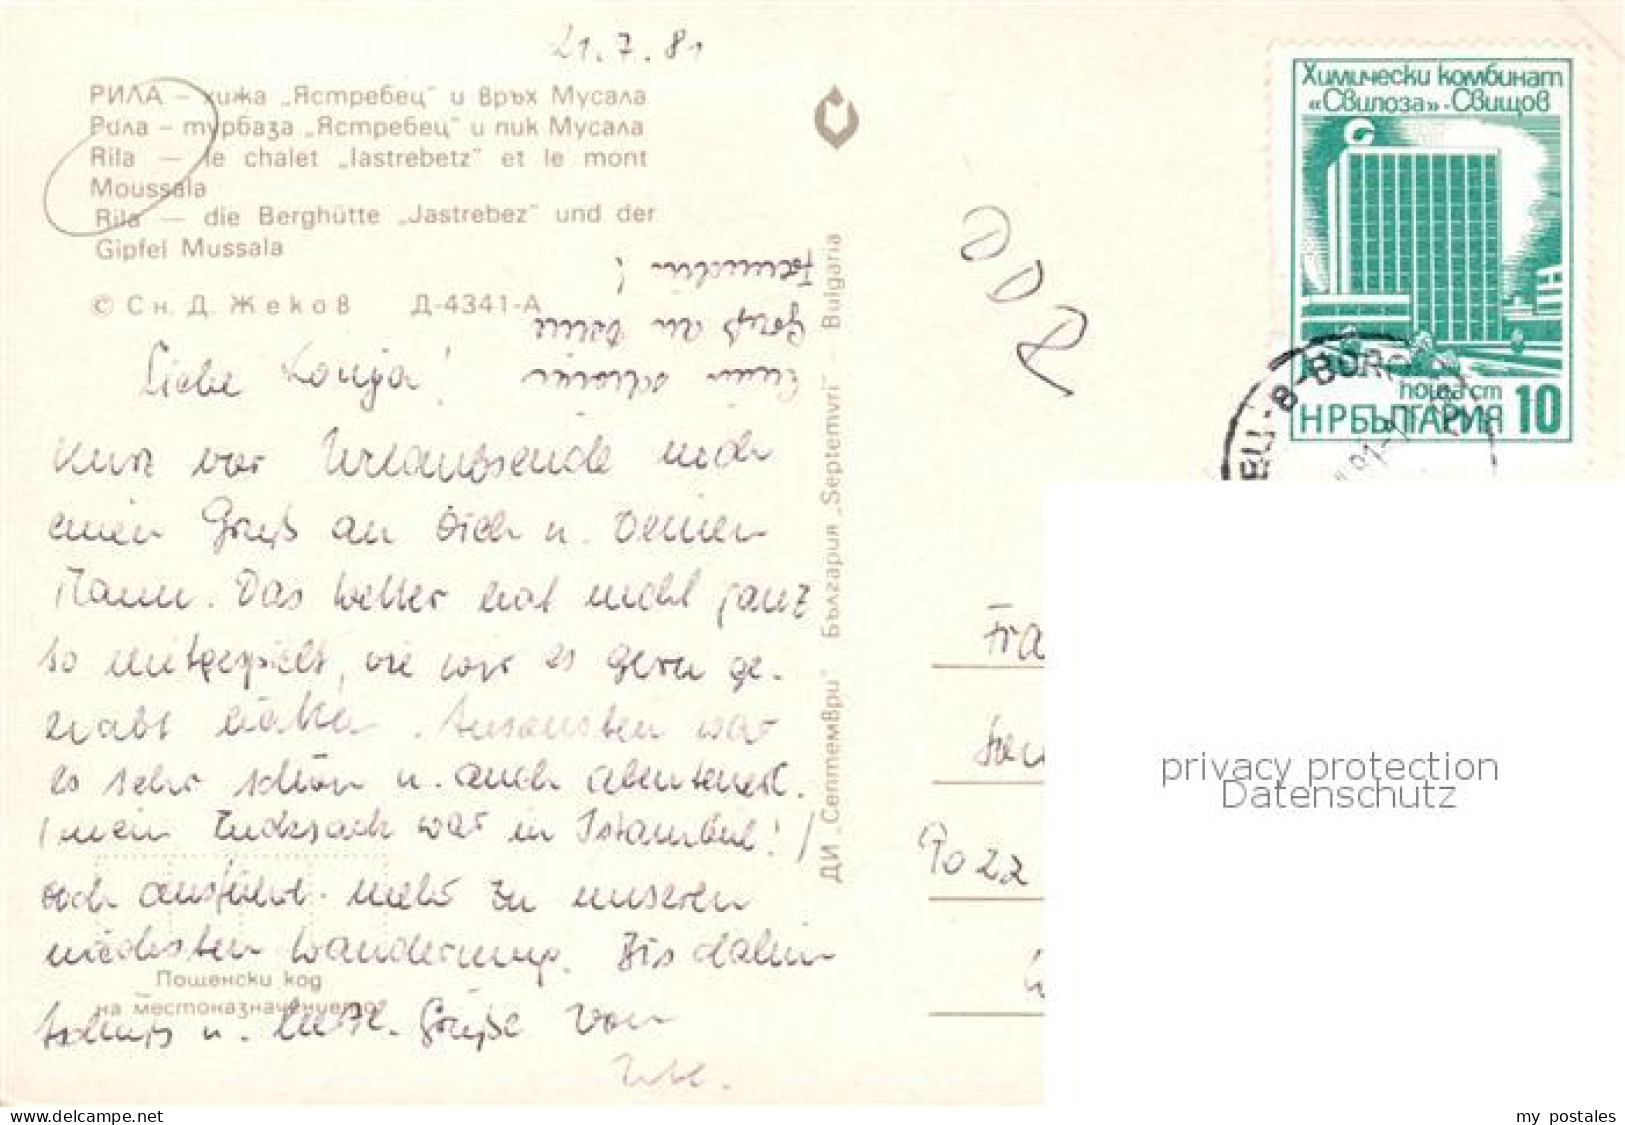 21.7.81
РИЛА – хижа „Ястребец" и връх Мусала
Рила – турбаза „Ястребец" и пик Мусала
Rila – le chalet „Iastrebetz" et le mont
Moussala
Rila – die Berghütte „Jastrebez" und der
Gipfel Mussala
© Сн. Д. Жеков Д-4341-А
Liebe !
Kurz vor Urlaubsende noch
einen Gruß an Dich u. Deinen
Mann. Das Wetter hat nicht ganz
so mitgespielt, wie wir es gern ge-
habt hätten. Ansonsten war
es sehr schön u. auch abenteuerl.
(mein Rucksack war in Istanbul!)
doch ausführl. mehr zu unseren
nächsten Wanderung. Bis dahin
tschüß u. liebe Grüße von
einen schönen
Gruß an Deine
ДИ „Септември" България „Septemvri" – Bulgaria
Пощенски код
на местоназначението
DDR
Химически комбинат
«Свилоза»-Свищов
поща ст
НР БЪЛГАРИЯ 10
Fra
Po 22
privacy protection
Datenschutz
www.delcampe.net
my_postales